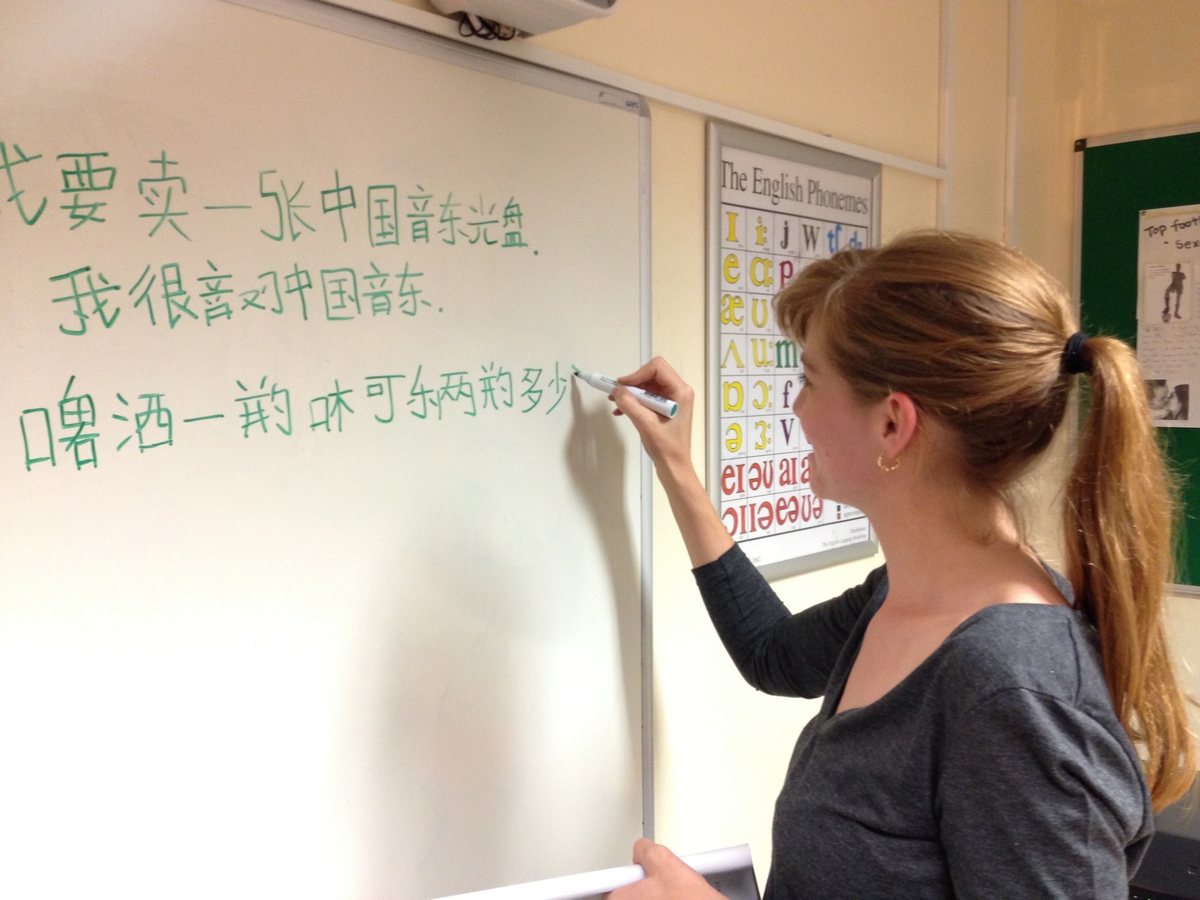 我要卖一张中国音东光盘.
我很音对中国音东.
啤洒一 可乐两 多少
The English Phonemes
I i: j W tʃ dʒ
e ɑ: p
æ ʊ
ʌ u: m
ɒ ɔ: f
ə ɜ: V
eɪ əʊ aɪ
ɔɪ ɪə eə ʊə
Top foot